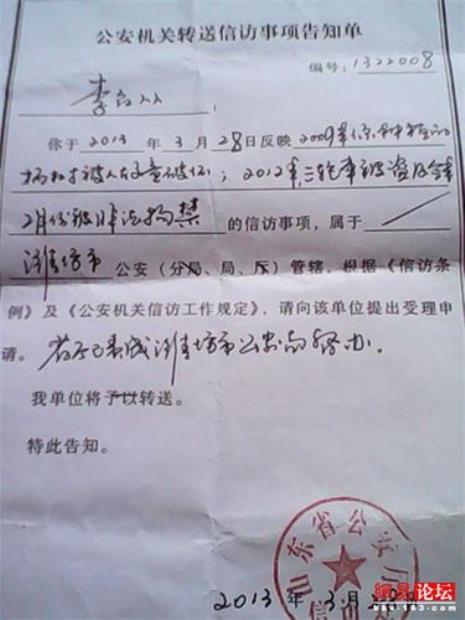 公安机关转送信访事项告知单
编号:1322008
李
你于2013年3月28日反映2009年你种植的
杨树被人故意破坏;2012年三轮车被盗及今年
2月份被非法拘禁的信访事项,属于
潍坊市公安(分局、局、厅)管辖,根据《信访条
例》及《公安机关信访工作规定》,请向该单位提出受理申
请。若厅已责成潍坊市公安局督办。
我单位将予以转送。
特此告知。
山东省公安厅
信访
2013年3月
網易论坛
bbs.163.com